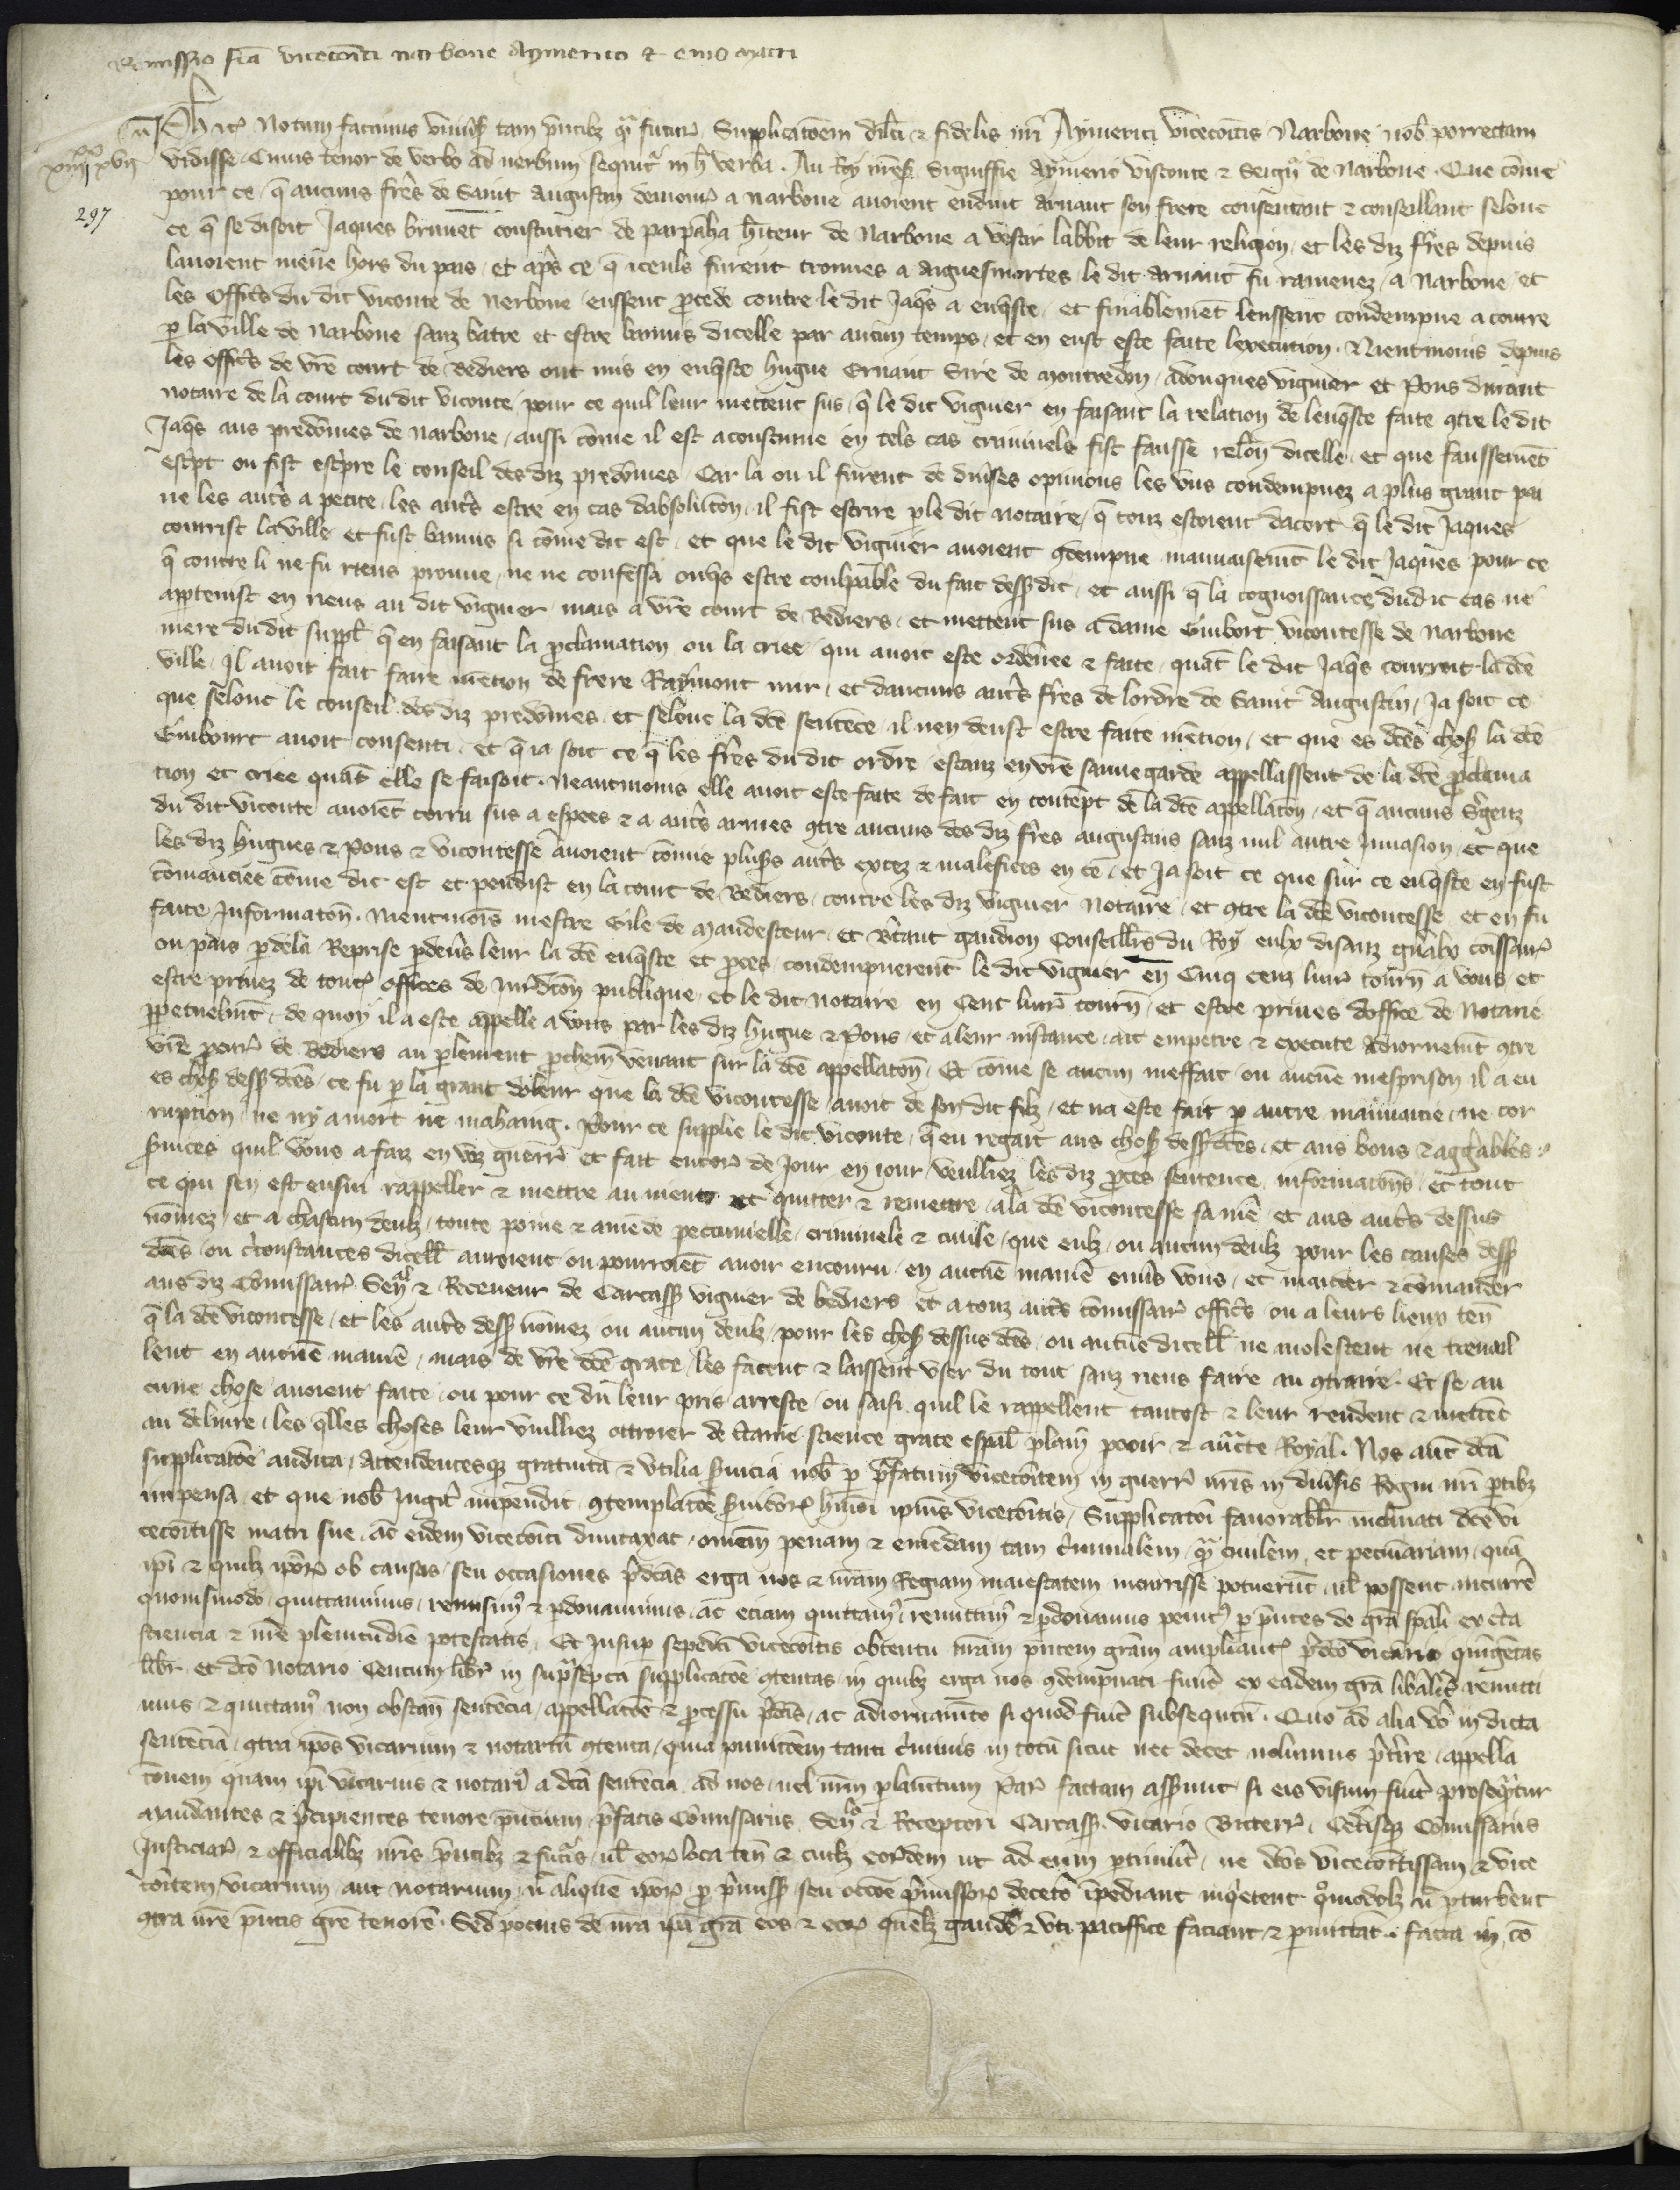 Remissio fća vicecoĩti narbone Aymerico & eius matri
Ph̃s ετ̃c Notum facimus vniũsis tam pñtibz qᵃm futuris Supplicatõem dilc̃i & fidelis nrĩ Aymerici vicecoĩtis Narbone nob̃ porrectam
xiiiixx xvii
297
vidisse Cuius tenor de verbo ad verbum sequitᵘr in h̃ verba. Au Roy nrẽs. Signiffie Aymeric visconte & Seignr̃ de Narbone. Que cõme
pour ce q̃ aucuns frẽs de Saint Augustin demourãs a Narbone auoient enduit Arnaut son frere consentant & conseillant selonc
ce q̃ se disoit Jaques brunet consturier de parpanha h̃iteur de Narbone a vestir labbit de leur religion, et les diz frẽs depuis
lauoient mene hors du pais, et apr̃s ce q̃ iceuls furent trouues a Aiguesmortes le dit Arnaut fu ramenez a Narbone et
les Offic̃s du dit viconte de Nerbone eussent p̃cede contre le dit Jaq̃s a enq̃ste, et finablemẽt leussent condempne a courre
p la ville de Narbone sanz batre et estre bannis dicelle par aucun temps, et en eust este faite lexecution. Nientmoins depuis
les offic̃s de vrẽ court de Bediers ont mis en enq̃ste hugue Ernaut Sire de Montredon, adonques viguier et Pons durant
notaire de la court dudit viconte, pour ce quil leur mettent sus, q̃ le dit viguier en faisant la relation de lenq̃ste faite 9tre le dit
Jaq̃s aus predõmes de Narbone, aussi cõme il est acoustume en tels cas criminels fist fausse relõn dicelle, et que faussemẽt
esc̃pt ou fist esc̃pre le conseil des diz predõmes, Car la ou il furent de diũses opinions les vns condempnez a plus grant pai
ne les autr̃s a petite, les autr̃s estre en cas dabsolutõn, il fist escrire p le dit notaire, q̃ touz estoient dacort q̃ le dit Jaques
courrist la ville et fust bannis si cõme dit est, et que le dit viguier auoient 9dempne mauuaisemẽt le dit Jaques pour ce
q̃ contre li ne fu riens prouue, ne ne confessa onq̃s estre coulpable du fait dessusdit, et aussi q̃ la cognoissance dudit cas ne
apptenist en riens au dit viguier, mais a vrẽ court de Bediers, et mettent sus a dame Emibort vicontesse de Narbone
mere dudit suppl̃ q̃ en faisant la p̃clamation ou la criee qui auoit este ordenee & faite, quãt le dit Jaq̃s courroit la dc̃e
ville, Il auoit fait faire mẽtion de frere Raymont mir, et daucuns autr̃s frẽs de lordre de Saint Augustin, Ja soit ce
que selonc le conseil des diz predõmes, et selonc la dc̃e sentẽce, il nen deust estre faite mẽtion, et que es dc̃es chos̃ la dc̃e
Emibourt auoit consenti, et q̃ ia soit ce q̃ les frẽs du dit ordre, estanz en vrẽ sauuegarde appellassent de la dc̃e p̃clama
tion et criee quãt elle se faisoit. Neantmoins elle auoit este faite de fait en contẽpt de la dc̃e appellatõn, et q̃ aucuns s̃gẽtz
du dit viconte auoiẽt corru sus a espees & a autr̃s armes 9tre aucuns des diz frẽs augustins sanz nul autre Inuasion, et que
les diz hugues & Pons & vicontesse auoient cõmis plus̃s autr̃s excez & malefices en ce, et Ja soit ce que sur ce enq̃ste en fust
cõmanciee cõme dit est et pendist en la court de Bediers, contre les diz viguier Notaire, et 9tre la dc̃e vicontesse et en fu
faite Informatõn. Nientmoĩs mestre Gile de Maudesteur, et B̃traut gaudion Conseill̃rs du Roy eulx disanz gñalx cõissair̃
ou pais p dela Reprise p deũs leur la dc̃e enq̃ste et p̃ces condempnerent le dit viguier en Cinq cenz liur̃ tourñ a vous et
estre priuez de tout̃ offices de Jurid̃con publique, et le dit notaire en Cent liur̃ tourñ, et estre priues doffice de Notarie
ppetuelm̃t, de quoy il a este appelle a vous par les diz hugue & Pons, et a leur instance, ait empetre & execute Adiornemẽt 9tre
vrẽ pcur̃ de Bediers au plement p̃chein venant sur la dc̃e appellatõn. Et cõme se aucun meffait ou aucune mesprison il a eu
es chos̃ dess̃ dc̃es, ce fu p la grant doleur que la dc̃e vicontesse auoit de son dit filz, et na este fait p autre mauuaitie, ne cor
ruption, ne ny a mort ne mahaing. Pour ce supplie le dit viconte, q̃ eu regart aus chos̃ dess̃ dc̃es, et aus bons & aggr̃ables
s̃uices quil vous a faiz en voz guerr̃ et fait encor̃ de Jour en iour veulliez les diz p̃ces sentence informatõns, et tout
ce qui sen est ensui rappeller & mettre au nient et quitter & remettre, a la dc̃e vicontesse sa mẽ et aus autr̃s dessus
nõmez et a chascun deulz, toute poine & amẽde pecunielle, criminele & ciuile, que eulz, ou aucun deulz pour les causes dess̃
dc̃es, ou c̃constances dicell̃ auroient ou pourroiẽt auoir encouru, en aucune maniẽ enũs vous, et mander & cõmander
aus diz Cõmissair̃, Senᵃl & Receueur de Carcass̃ viguier de bediers et a touz autr̃s cõmissair̃ offic̃s ou a leurs lieux teñ
q̃ la dc̃e vicontesse, et les autr̃s dess̃ nõmez ou aucun deulz, pour les chos̃ dessus dc̃es, ou aucune dicell̃ ne molestent ne trauail
lent en aucune maniẽ, mais de vrẽ dc̃e grace, les facent & laissent vser du tout sanz riens faire au 9traire. Et se au
cune chose auoient faite, ou pour ce du leur pris arreste, ou saisi, quil le rappellent tantost & leur rendent & mettẽt
au deliure, les q̃lles choses leur vuilliez ottroier de c̃taine science grace esp̃al plain pooir & auc̃te Royal. Nos aut̃ dc̃a
supplicatõe audita, Attendentesqz gratuita & vtilia s̃uicia nob̃ p p̃fatum vicecoĩtem in guerr̃ nrĩs in diũsis Regni nrĩ ptibz
impensa et que nob̃ Jugit̃ impendit, 9templatõe s̃uitor̃ hm̃oi ipĩus vicecoĩtis, Supplicatoĩ fauorabilr̃ inclinati dc̃e vi
cecoĩtisse matri sue, ac eidem vicecoĩti dumtaxat, omẽm penam & emẽdam tam c̃iminalem, qᵃm ciuilem, et pecuniariam, quã
ipĩ & quilz ipõr̃ ob causas, seu occasiones p̃dc̃as erga nos & nrãm Regiam maiestatem incurrisse potuerũt, ul̃ possent incurrẽ
quouismodo, quittauimus, remisimᵘs & p̃donauimus, ac eciam quittamᵘs, remittimᵘs & p̃donamus penitᵘs p p̃ntes de grã sp̃ali ex c̃ta
sciencia & nrẽ plenitudiẽ potestatis. Et Insup sepedc̃i vicecoĩtis obtentu nrãm p̃ntem grãm ampliantes p̃dc̃o vicario quĩgẽtas
libr̃ et dc̃o notario Centum libr̃ in supᵃscp̃ta supplicatõe 9tentas, in quibz erga nos 9dempnati fuer̃t ex eadem grã liberalit̃ remitti
mus & quittamᵘs non obstan̄ sentẽcia, appellatõe & p̃cessu p̃dc̃is, ac adiornamẽto si quod fuit̃ subsequtũ. Quo ad alia vo in dicta
sentẽciã, 9tra ip̃os vicarium & notariũ 9tenta, quia punitõem tanti c̃iminis in totũ sicut nec decet nolumus p̃t̃ire, appella
tõnem quam ip̃i vicarius & notariᵘs a dc̃a sentẽcia ad nos, uel nrũm plamẽtum Par̃ factam asserunt, si eis visum fuit̃ prosequᵃtur
Mandantes & p̃cipientes tenore p̃ntium, p̃fatis Cõmissariis, Senllo & Receptori Carcass̃, vicario Biterr̃, Cet̃isqz Cõmissariis
Justiciar̃ & officialibz nrĩs p̃ntibz & futur̃, ul̃ eor̃ loca teñ & cuilz eor̃dem ut ad eum ptinuit̃, ne dc̃os vicecoĩtissam & vice
coĩtem, vicarium aut notarium, ul̃ aliquẽ ipõr̃ p p̃miss̃ seu occoẽ p̃missor̃ decet̃o ĩpediant inq̃etent q̃modolz ul̃ pturbent
9tra nrẽ p̃ntis grẽ tenorẽ. Sed pocius de nrã ip̃a grã eos & eor̃ quẽlz gaudẽ & vti pacifficẽ faciant, & pmittãt. facta in co